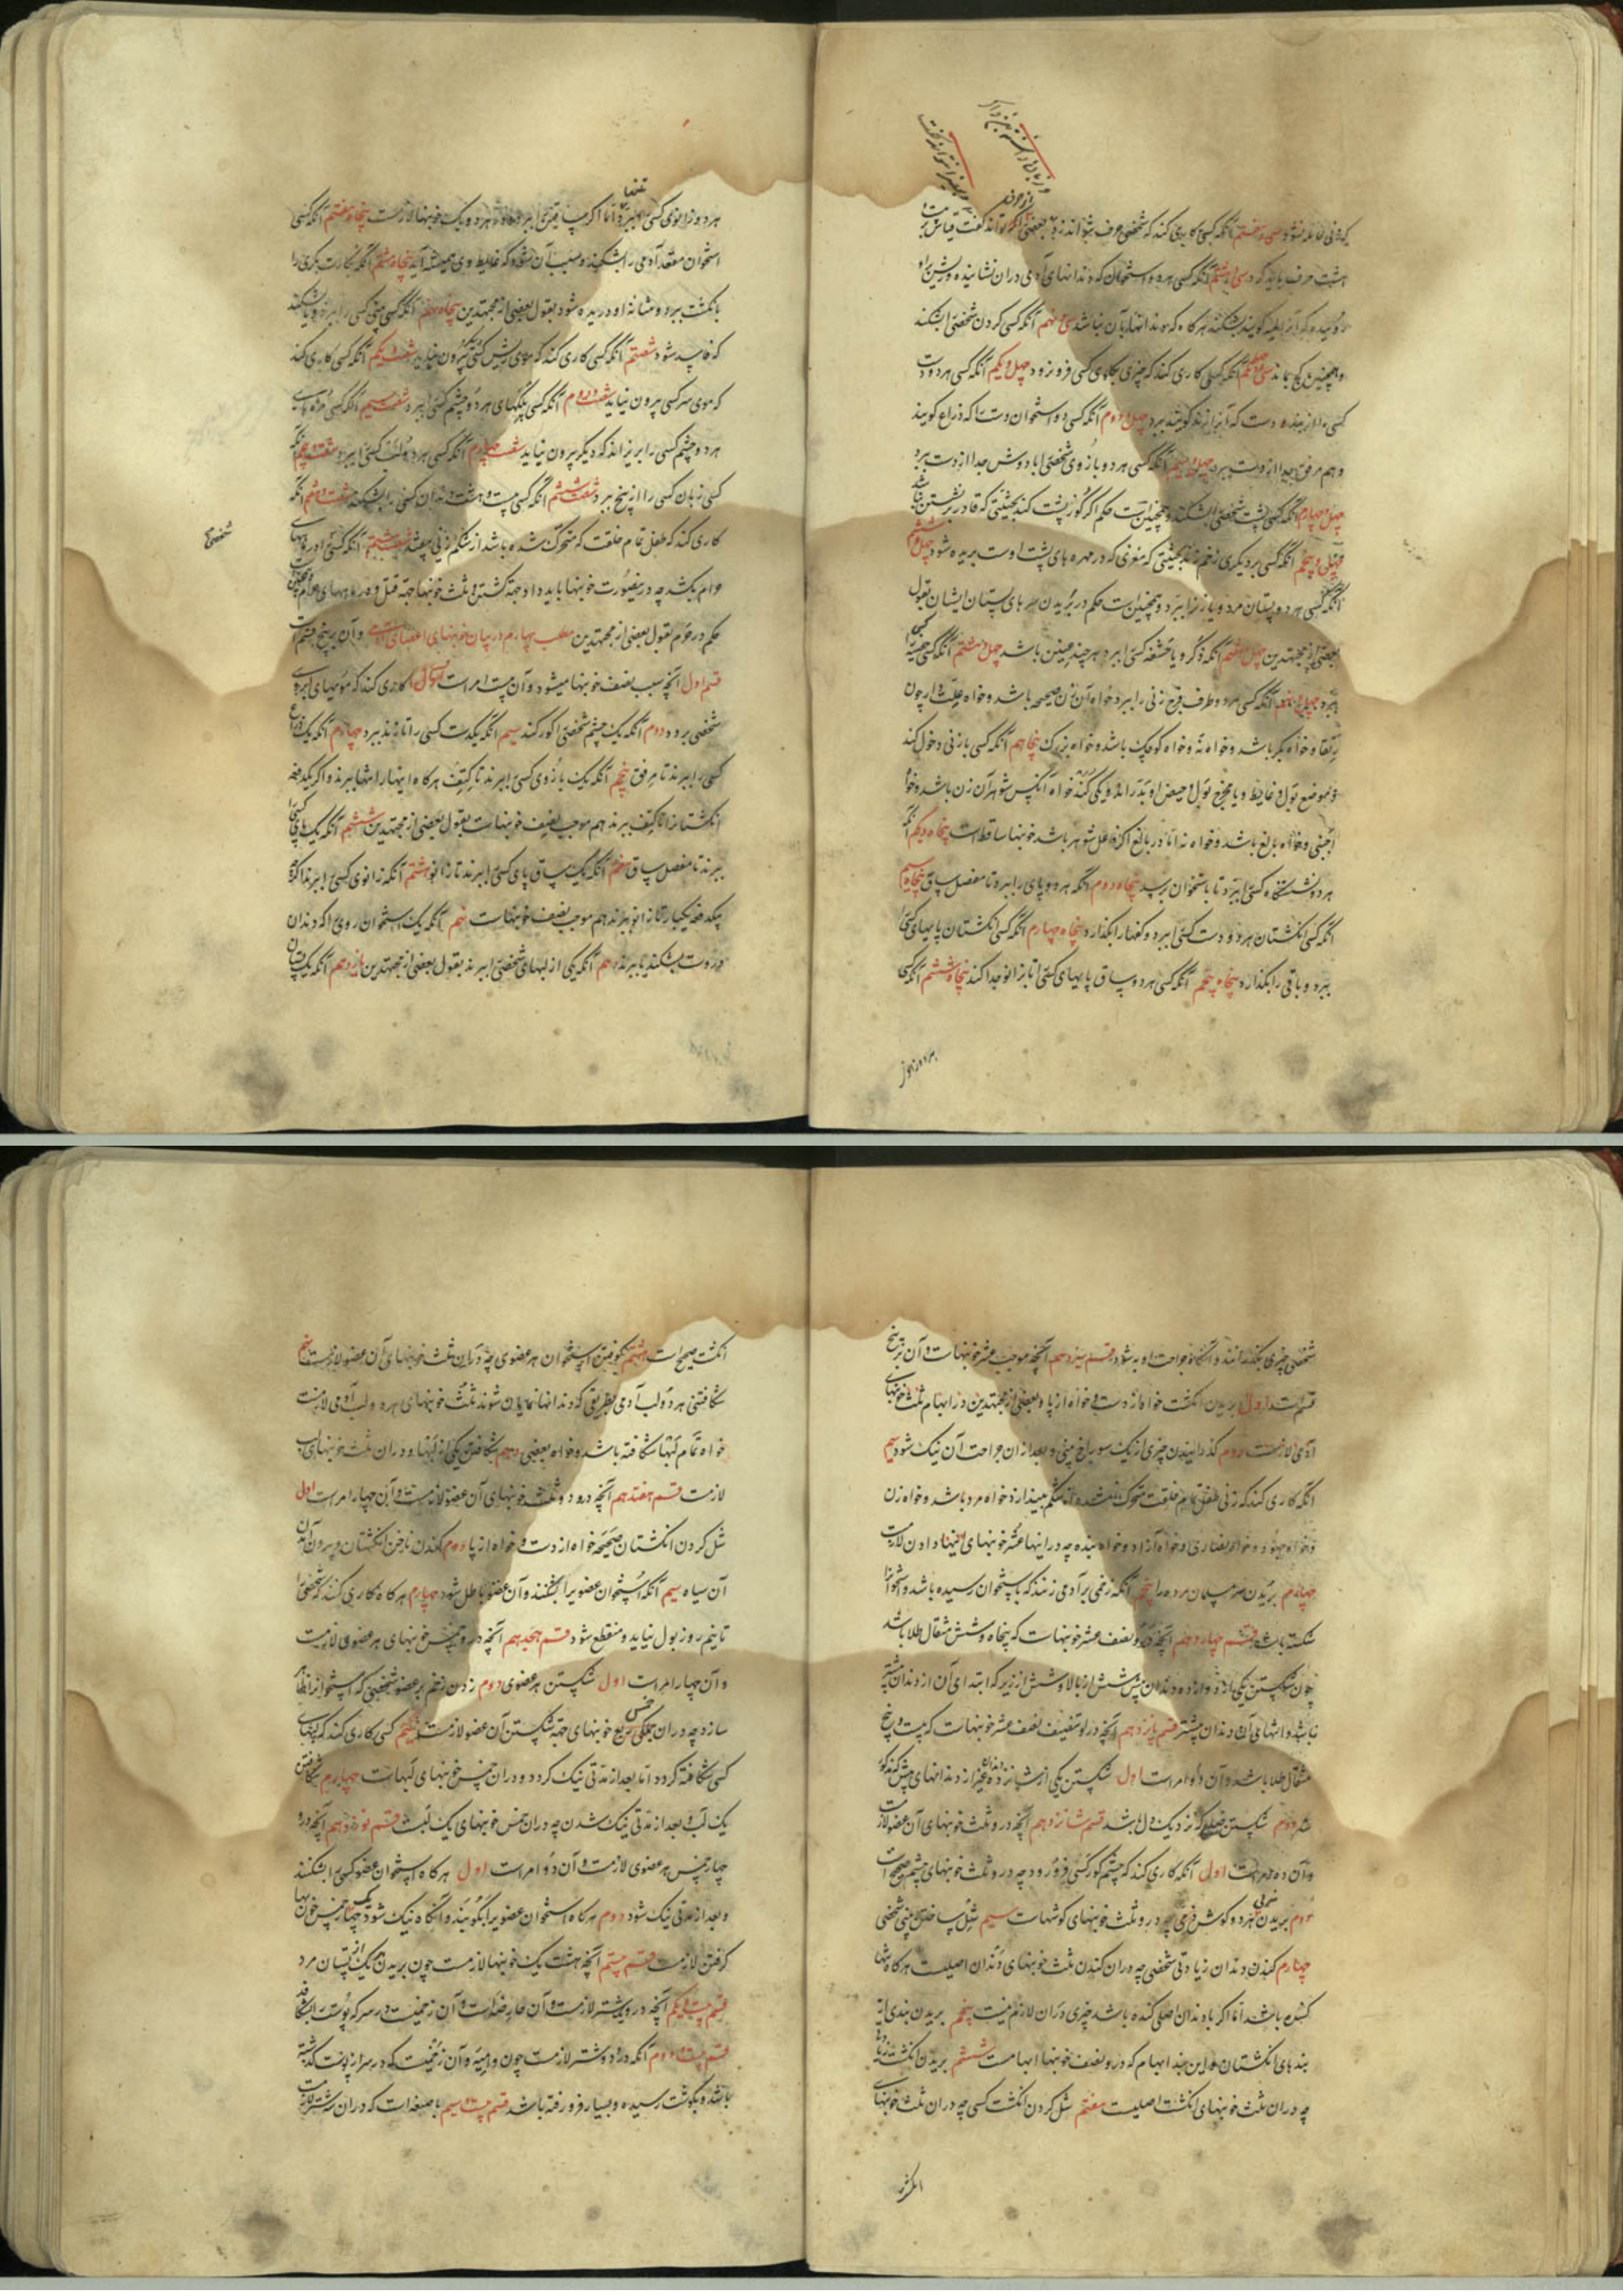 هشت حرف باید کرد سی و هشتم آنکه کسی هر دو استخوان که دندانهای آدمی در آن نشانیده و ریش بر او
روییده که آنرا لحیه گویند بشکند هرگاه که دندانها با آن نباشد سی و نهم آنکه کسی گردن شخصی را بشکند
و همچنین کج بماند چهلم آنکه کسی کاری کند که چیزی بگلوی کسی فرو نرود چهل و یکم آنکه کسی هر دو دست
کسی را از بند دست که آنرا زند گویند ببرد چهل و دوم آنکه کسی دو استخوان دست را که ذراع گویند
و هم مرفق جدا از دست ببرد چهل و سیم آنکه کسی هر دو بازوی شخصی را با دوش جدا از دست ببرد
چهل و چهارم آنکه کسی پشت شخصی را بشکند و همچنین است حکم اگر کوزپشت کند بحیثیتی که قادر بر نشستن نباشد
چهل و پنجم آنکه کسی بر دیگری زخم زند بحیثیتی که مغزی که در مهره های پشت اوست بریده شود چهل و ششم
آنکه کسی هر دو پستان مرد و یا زنرا ببرد و همچنین است حکم در بریدن سرهای پستان ایشان بقول
بعضی از مجتهدین چهل و هفتم آنکه ذکر و یا حشفه کسی را ببرد هر چند عنین باشد چهل و هشتم آنکه کسی خصیه کسی را
ببرد چهل و نهم آنکه کسی هر دو طرف فرج زنی را ببرد خواه آن زن صحیحه باشد و خواه علت دار چون
رتقا و خواه بکر باشد و خواه نه و خواه کوچک باشد و خواه بزرک پنجاهم آنکه کسی با زنی دخول کند
و موضع بول و غایط و یا مخرج بول و حیض او بدراند و یکی کند خواه آنکس شوهر آن زن باشد و خواه
اجنبی و خواه بالغ باشد و خواه نه اما در بالغ اگر فاعل شوهر باشد خونبها ساقطست پنجاه و یکم آنکه
هر دو نشستگاه کسی را ببرد تا باستخوان برسد پنجاه و دوم آنکه هر دو پای را ببرد تا مفصل ساق پنجاه و سیم
آنکه کسی انکشتان هر دو دست کسی را ببرد و کفها را بگذارد پنجاه و چهارم آنکه کسی انکشتان پایهای کسی را
ببرد و باقی را بگذارد پنجاه و پنجم آنکه کسی هر دو ساق پایهای کسی را تا بزانو جدا کند پنجاه و ششم آنکه کسی
هر دو زانوی
هر دو زانوی کسی را ببرد تنها اما اگر هر دو یک خونبها لازمست پنجاه و هفتم آنکه کسی
استخوان مقعد آدمی را بشکند و سبب آن شود که غایط وی همیشه آید پنجاه و هشتم آنکه بکارت بکری را
بانکشت ببرد و مثانه او دریده شود بقول بعضی از مجتهدین پنجاه و نهم آنکه کسی بینی کسی را ببرد و یا بشکند
که فاسد شود شصتم آنکه کسی کاری کند که موی ریش کسی دیگر بیرون نیاید شصت و یکم آنکه کسی کاری کند
که موی سر کسی بیرون نیاید شصت و دوم آنکه کسی پلکهای هر دو چشم کسی را ببرد شصت و سیم آنکه کسی مژه های
هر دو چشم کسی را بریزاند که دیگر بیرون نیاید شصت و چهارم آنکه کسی هر دو لب کسی را ببرد شصت و پنجم آنکه
کسی زبان کسی را از بیخ ببرد شصت و ششم آنکه کسی بیست و هشت دندان کسی را بشکند شصت و هفتم آنکه
کاری کند که طفل تمام خلقت که متحرک شده باشد از شکم زنی بیفتد شصت و هشتم آنکه کسی را در ماههای
حرام بکشد چه درینصورت خونبها باید داد جهة کشتن و ثلث خونبها جهة قتل در ماههای حرام و همچنین
شخصی
حکم در حرم بقول بعضی از مجتهدین مطلب چهارم در بیان خونبهای اعضای آدمی و آن بر پنج قسم است
قسم اول آنچه سبب نصف خونبها میشود و آن بیست امر است اول کسی کاری کند که مویهای ابروی
شخصی برود دوم آنکه یک چشم شخصی را کور کند سیم آنکه یکدست کسی را تا زند ببرد چهارم آنکه یک ذراع
کسی را ببرند تا مرفق پنجم آنکه یک بازوی کسی را ببرند تا کتف هرگاه اینها را تنها ببرند و اگر یکدفعه
انکشتانرا تا کتف ببرند هم موجب نصف خونبهاست بقول بعضی از مجتهدین ششم آنکه یک پای کسی را
ببرند تا مفصل ساق هفتم آنکه یک ساق پای کسی را ببرند تا زانو هشتم آنکه زانوی کسی را ببرند اگر
یکدفعه یکبار تا زانو ببرند هم موجب نصف خونبهاست نهم آنکه یک استخوان روی را که دندان
دروست بشکند یا ببرند دهم آنکه یکی از لبهای شخصی را ببرند بقول بعضی از مجتهدین یازدهم آنکه یک پستان
شخصی چیزی بگذرانند و آنگاه جراحت او به شود قسم سیزدهم آنچه موجب عشر خونبهاست و آن بر پنج
قسم است اول بریدن انکشت خواه از دست و خواه از پا و بعضی از مجتهدین در ابهام ثلث خونبهای
آدمی لازمست دوم گذرانیدن چیزی از یک سوراخ بینی و بعد از آن جراحت آن نیک شود سیم
آنکه کاری کند که زنی طفل تمام خلقت متحرک نشده از شکم بیندازد خواه مرد باشد و خواه زن
و خواه جهود و خواه نصاری و خواه آزاد و خواه بنده چه در اینها عشر خونبهای اینها دادن لازمست
چهارم بریدن سر مسلمان مرده را پنجم آنکه زخمی بر آدمی زنند که باستخوان رسیده باشد و استخوانرا
شکسته باشد قسم چهاردهم آنچه درو نصف عشر خونبهاست که پنجاه و شش مثقال طلا باشد
چون شکستن یکی از دوازده دندان پیش شش از بالا و شش از زیر که ابتدای آن از دندان بیشتر
نباشد و انتهای آن دندان بیشتر قسم پانزدهم آنچه در او تنصیف نصف عشر خونبهاست که بیست و پنج
مثقال طلا باشد و آن دو امر است اول شکستن یکی از شانزده دندان غیر از دندانهای پیش که مذکور
شد دوم شکستن ضلعی که نزدیک دل باشد قسم شانزدهم آنچه درو ثلث خونبهای آن عضو لازمست
و آن ده امر است اول آنکه کاری کند که چشم کور کسی فرو رود چه درو ثلث خونبهای چشم صحیح است
دوم بریدن نرمی هر دو گوش چه درو ثلث خونبهای گوشهاست سیم شل ساختن بینی شخصی
چهارم کندن دندان زیادتی شخصی چه در آن کندن ثلث خونبهای دندان اصلیست هرگاه تنها
کنده باشد اما اگر با دندان اصلی کنده باشد چیزی در آن لازم نیست پنجم بریدن بندی از
بندهای انکشتان و این بند ابهام که درو نصف خونبها ابهامست ششم بریدن انکشت زیاد
چه در آن ثلث خونبهای انکشت اصلیست هفتم شل کردن انکشت کسی چه در آن ثلث خونبهای
انکشت
انکشت صحیح است هشتم کوفتن استخوان هر عضوی چه در آن ثلث خونبهای آن عضو لازمست نهم
شکافتن هر دو لب آدمی بطریقی که دندانها نمایان شوند ثلث خونبهای هر دو لب آدمی لازمست
خواه تمام لبها شکافته باشد و خواه بعضی دهم شکافتن یکی از لبها و در آن ثلث خونبهای لب
لازمست قسم هفدهم آنچه درو دو ثلث خونبهای آن عضو لازمست و آن چهار امر است اول
شل کردن انکشتان صحیحه خواه از دست و خواه از پا دوم کندن ناخن انکشتان و بیرون آمدن
آن سیاه سیم آنکه استخوان عضویرا بشکنند و آن عضو باطل شود چهارم هرگاه کاری کنند که شخصی را
تا نیم روز بول نیاید و منقطع شود قسم هجدهم آنچه درو خمس خونبهای هر عضوی لازمست
و آن چهار امر است اول شکستن هر عضوی دوم زدن زخم بر عضو شخصی که استخوانرا ظاهر
سازد چه در آن ربع خونبهای جهة شکستن آن عضو لازمست سیم کسی کاری کند که لبهای
کسی شکافته گردد اما بعد از مدتی نیک گردد و در آن خمس خونبهای لبهاست چهارم شکافتن
یک لب و بعد از مدتی نیک شدن چه در آن خمس خونبهای یک لبست قسم نوزدهم آنچه درو
چهار خمس هر عضوی لازمست و آن دو امر است اول هرگاه استخوان عضو کسی را بشکنند
و بعد از مدتی نیک شود دوم هرگاه استخوان عضویرا بکوبند و آنگاه نیک شود چهار خمس خونبها
گرفتن لازمست قسم بیستم آنچه هشت یک خونبها لازمست چون بریدن هر یک از پستان مرد
قسم بیست و یکم آنچه درو یک شتر لازمست و آن حارصه است و آن زخمیست در سر که پوست را بشکافد
قسم بیست و دوم آنکه درو دو شتر لازمست چون دامیه و آن زخمیست که در سر از پوست گذشته
باشد و بگوشت رسیده و بسیار فرو رفته باشد قسم بیست و سیم باضعه است که در آن سه شتر لازمست